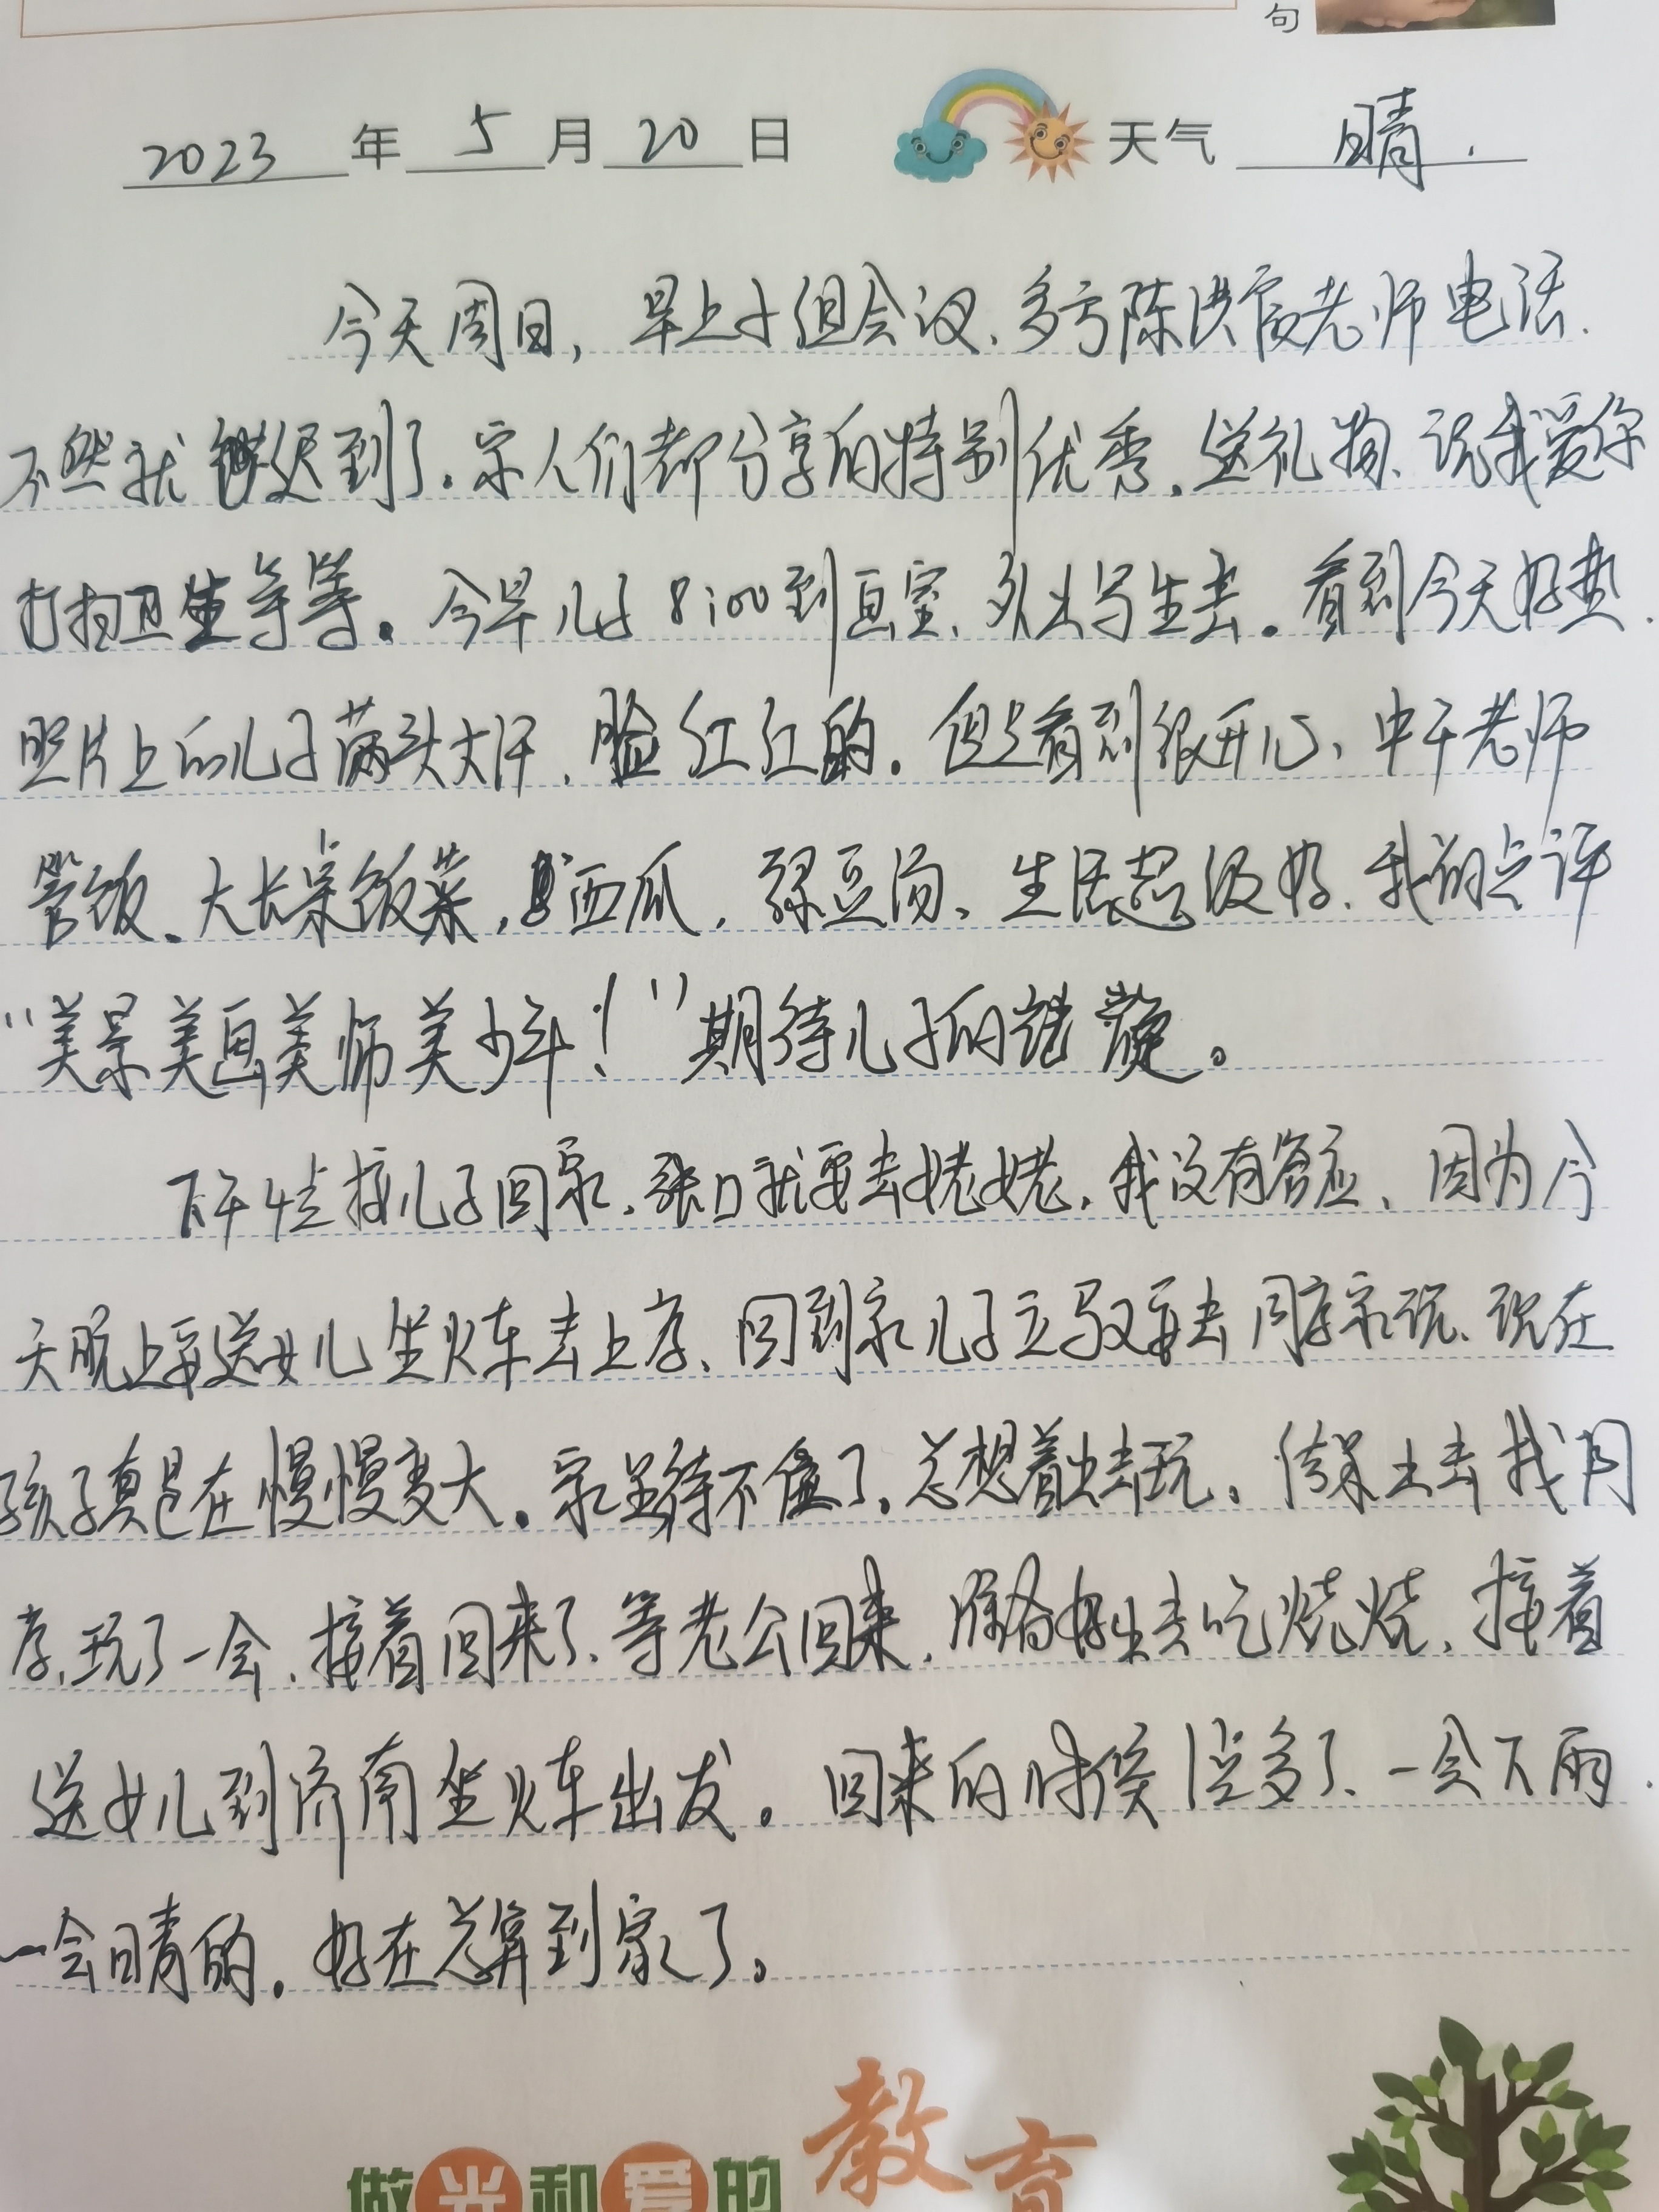 句
2023 年 5 月 20 日 天气 晴.
今天周日，早上小组会议、多亏陈洪霞老师电话.
不然就迟到了。家人们都分享的特别优秀。送礼物、说我爱你
打扫卫生等等。今早儿子8:00到画室、外出写生去。看到今天好热.
照片上的儿子满头大汗、脸红红的。但是看到很开心、中午老师
管饭。大长桌饭菜，西瓜，绿豆汤、生活超级好、我的点评
"美景美画美师美少年！"期待儿子的绽放。
下午4点接儿子回家、张口就要去姥姥、我没有答应、因为今
天晚上要送女儿坐火车去上学、回到家儿子立马又要去同学家玩、现在
孩子真是在慢慢变大。家里待不住了。总想着出去玩。结果出去找同
学、玩了一会、接着回来了、等老公回来，准备好出去吃烧烤、接着
送女儿到济南坐火车出发。回来的时候1点多了、一会下雨.
一会晴的。好在总算到家了。
做光和爱的教育